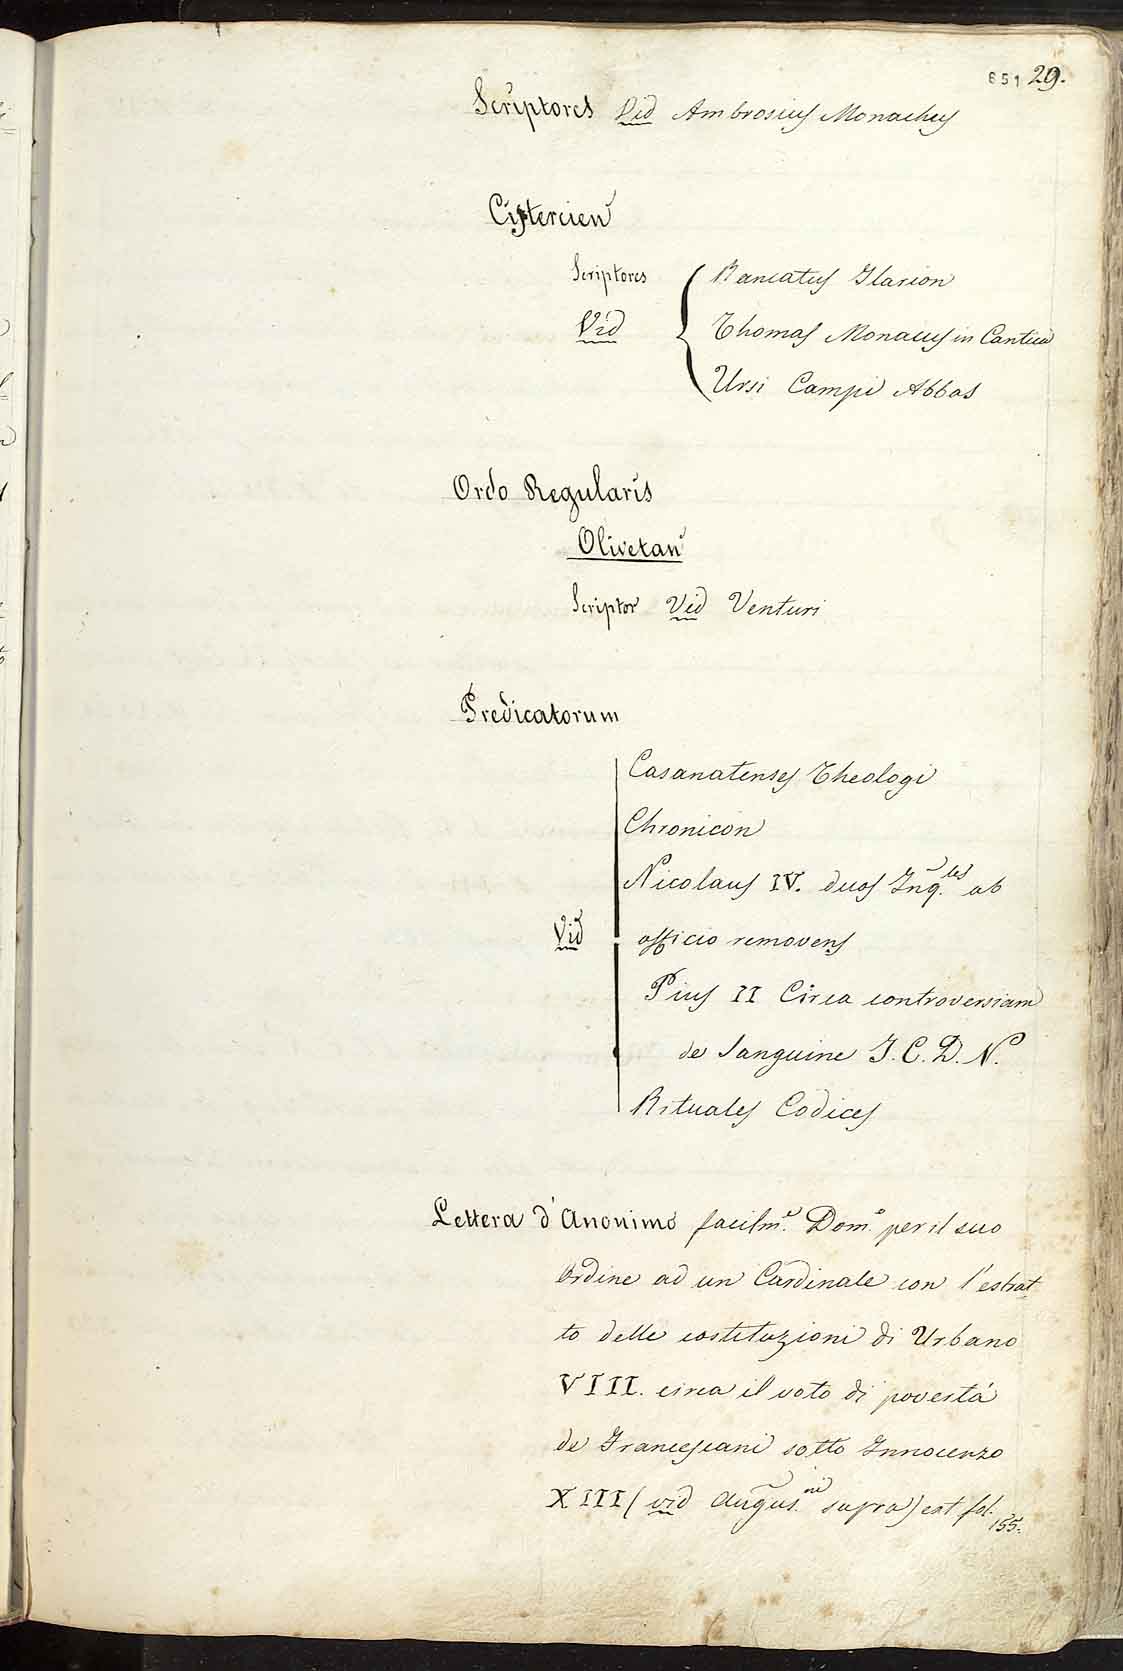 651 29.
Scriptores Vid Ambrosius Monachus
Cistercien
Scriptores
Vid
Rancatus Ilarion
Thomas Monacus in Cantica
Ursi Campi Abbas
Ordo Regularis
Olivetan
Scriptor Vid Venturi
Predicatorum
Vid
Casanatenses Theologi
Chronicon
Nicolaus IV. duos Inq.les ab
officio removens
Pius II Circa controversiam
de Sanguine J. C. D. N.
Rituales Codices
Lettera d'Anonimo facilm.e Dom.o per il suo
Ordine ad un Cardinale con l'estrat
to delle costituzioni di Urbano
VIII. circa il voto di povertá
de Francescani sotto Innocenzo
XIII (vid Augus.ni supra) ext fol.
155.